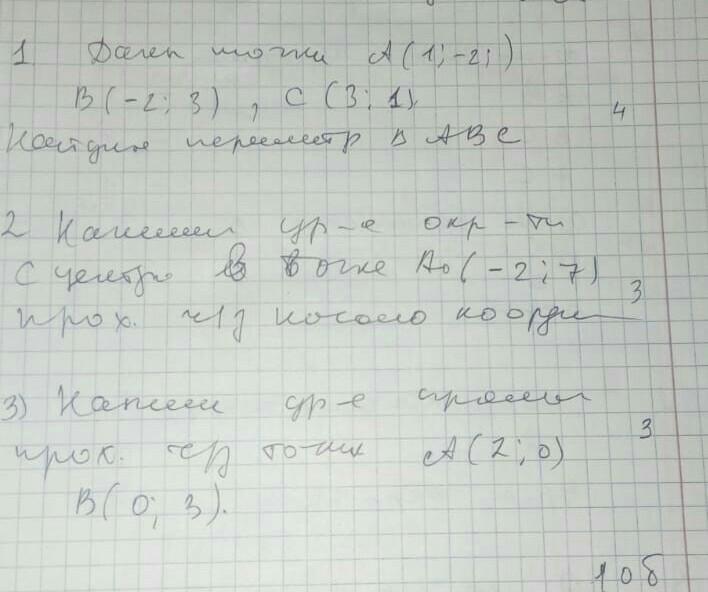 1 Даны точки A(1; -2;)
B(-2; 3), C(3; 1).
Найдите периметр Δ ABC 4
2 Напиши ур-е окр-ти
с центро в точке A0(-2; 7)
прох. ч/з начало коорди 3
3) Напиши ур-е прямы
прох. ч/з точки A(2; 0) 3
B(0; 3).
10б